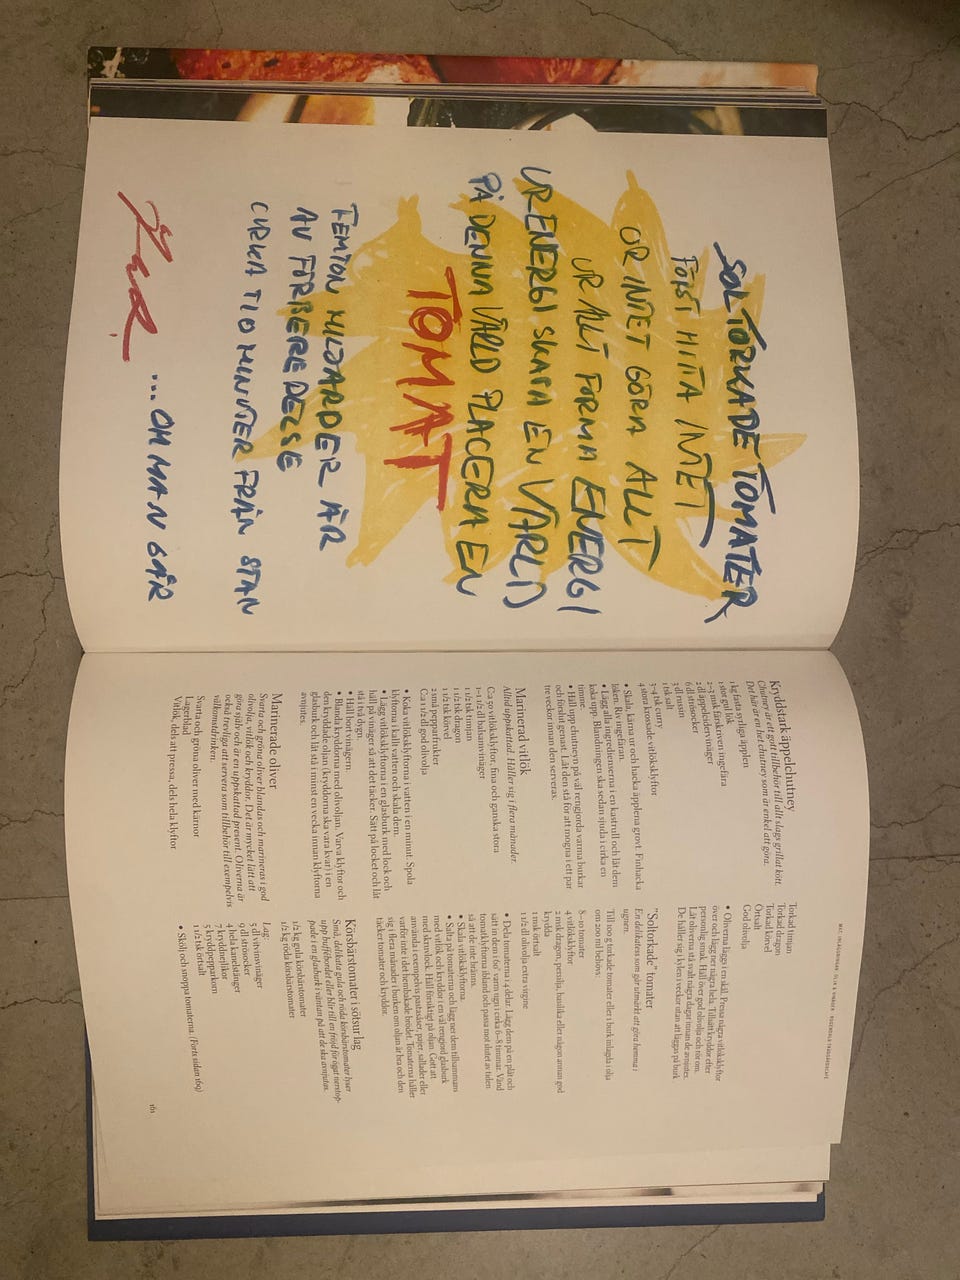 SOLTORKADE TOMATER
FÖRST HITTA INTET
UR INTET GÖRA ALLT
UR ALLT FORMA ENERGI
UR ENERGI SKAPA EN VÄRLD
PÅ DENNA VÄRLD PLACERA EN
TOMAT
FEMTON MILJARDER ÅR
AV FÖRBEREDELSE
CIRKA TIO MINUTER FRÅN STAN
... OM MAN GÅR
Kryddstark äppelchutney
Chutney är ett gott tillbehör till allt slags grillat kött.
Det här är en het chutney som är enkel att göra.
1 kg fasta syrliga äpplen
1 stor gul lök
2–3 msk färskriven ingefära
2 dl äppelcidervinäger
6 dl strösocker
3 dl russin
1 tsk salt
3–4 tsk curry
4 stora krossade vitlöksklyftor
• Skala, kärna ur och hacka äpplena grovt. Finhacka
löken. Riv ingefäran.
• Lägg alla ingredienserna i en kastrull och låt dem
koka upp. Blandningen ska sedan sjuda i cirka en
timme.
• Häll upp chutneyn på väl rengjorda varma burkar
och förslut genast. Låt den stå för att mogna i ett par
tre veckor innan den serveras.
Marinerad vitlök
Alltid uppskattad. Håller sig i flera månader.
C:a 50 vitlöksklyftor, fina och ganska stora
1–1 1/2 dl balsamvinäger
1 1/2 tsk timjan
1 1/2 tsk dragon
1 1/2 tsk körvel
2 små pepparfrukter
C:a 1 1/2 dl god olivolja
• Koka vitlöksklyftorna i vatten i en minut. Spola
klyftorna i kallt vatten och skala dem.
• Lägg vitlöksklyftorna i en glasburk med lock och
häll på vinäger så att det täcker. Sätt på locket och låt
stå i två dygn.
• Häll bort vinägern.
• Blanda kryddorna med olivoljan. Varva klyftor och
den kryddade oljan (kryddorna ska vara kvar) i en
glasburk och låt stå i minst en vecka innan klyftorna
avnjutes.
Marinerade oliver
Svarta och gröna oliver blandas och marineras i god
olivolja, vitlök och kryddor. Det är mycket lätt att
göra själv och är en uppskattad present. Oliverna är
också trevliga att servera som tillbehör till exempelvis
välkomstdrinken.
Svarta och gröna oliver med kärnor
Lagerblad
Vitlök, dels att pressa, dels hela klyftor
Torkad timjan
Torkad dragon
Torkad körvel
Örtsalt
God olivolja
• Oliverna lägges i en skål. Pressa några vitlöksklyftor
över och lägg ner några hela. Tillsätt kryddor efter
personlig smak. Häll över god olivolja och rör om.
Låt oliverna stå svalt några dagar innan de avnjutes.
De håller sig i kylen i veckor utan att läggas på burk
"Soltorkade" tomater
En delikatess som går utmärkt att göra hemma i
ugnen.
Till 100 g torkade tomater eller i burk inlagda i olja
om 200 ml behövs:
8–10 tomater
4 vitlöksklyftor
2 msk dragon, persilja, basilika eller någon annan god
krydda
1 msk örtsalt
1 1/2 dl olivolja extra virgine
• Dela tomaterna i 4 delar. Lägg dem på en plåt och
sätt in dem i 60° varm ugn i cirka 6–8 timmar. Vänd
tomatklyftorna ibland och passa mot slutet av tiden
så att de inte bränns.
• Skala vitlöksklyftorna.
• Salta på tomaterna och lägg ner dem tillsammans
med vitlök och kryddor i en väl rengjord glasburk
med skruvlock. Häll försiktigt på oljan. Gott att
använda i exempelvis pastasåser, pajer, sallader eller
varför inte i det hembakade brödet. Tomaterna håller
sig i flera månader i burken om oljan är bra och den
täcker tomater och kryddor.
Körsbärstomater i sötsur lag
Små, delikata gula och röda körsbärstomater lyser
upp buffébordet eller blir till en fröjd för ögat nerstop-
pade i en glasburk i väntan på att de ska avnjutas.
1/2 kg gula körsbärstomater
1/2 kg röda körsbärstomater
Lag:
5 dl vitvinsvinäger
9 dl strösocker
4 hela kanelstänger
7 kryddnejlikor
5 kryddpepparkorn
1 1/2 tsk örtsalt
• Skölj och snoppa tomaterna. (Forts sidan 169)
161